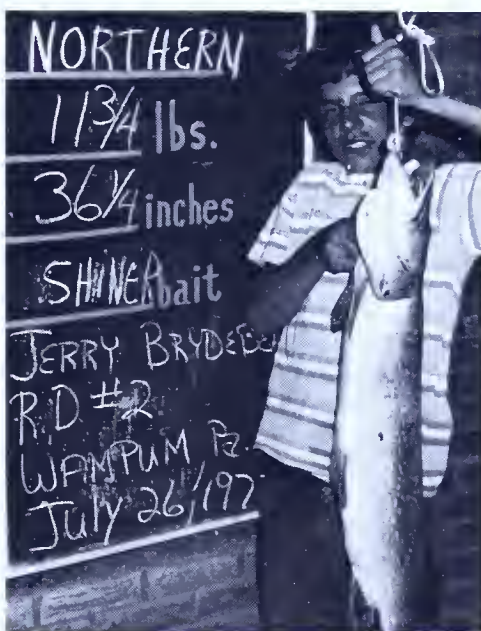 NORTHERN
11 3/4 lbs.
36 1/4 inches
SHINER bait
JERRY
R.D #2
WAMPUM Pa.
July 26, 197